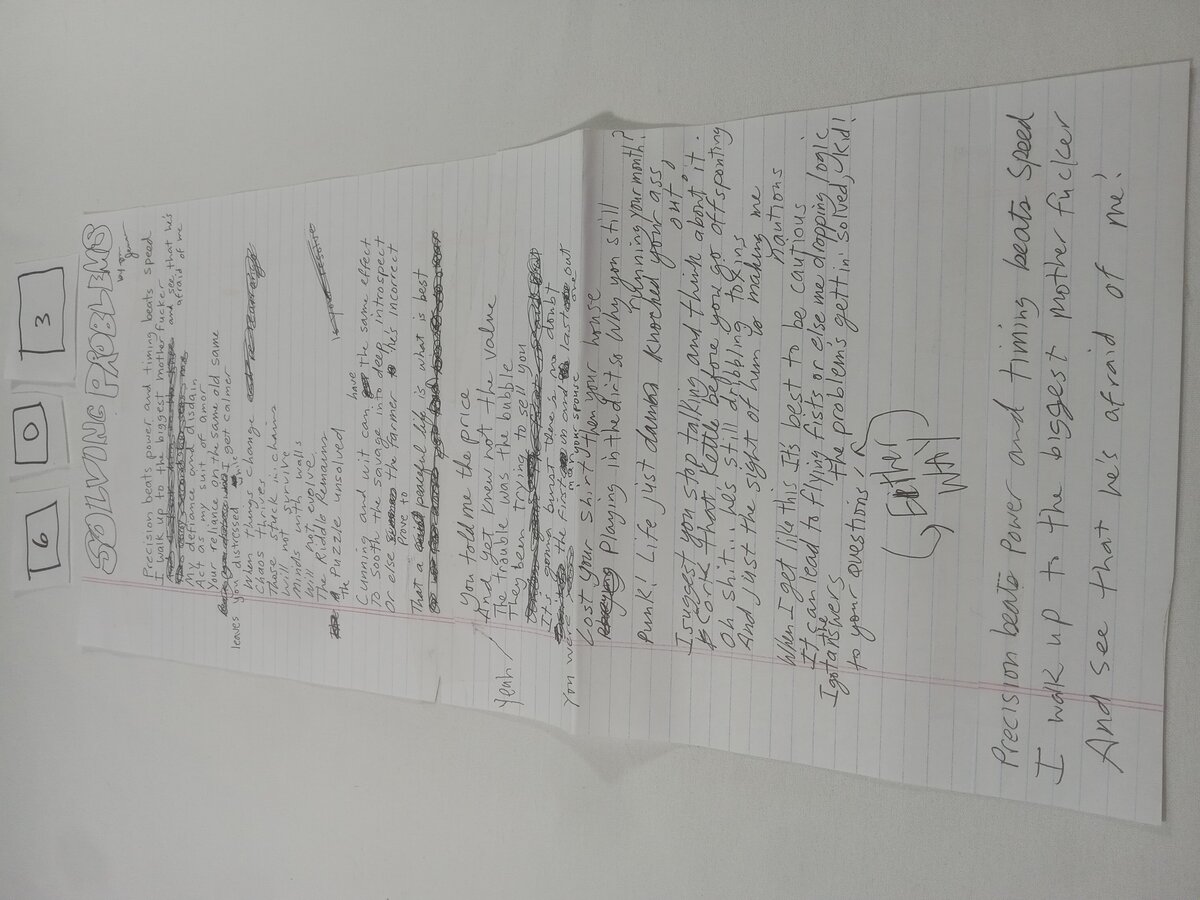 6 0 3
SOLVING PROBLEMS
by
Precision beats power and timing beats speed
I walk up to the biggest mother fucker
and see that he's
afraid of me
My defiance and disdain
Act as my suit of amor
Your reliance on the same old same
leaves you distressed I get calmer
When things change
Chaos thrives
Those stuck in chains
Will not survive
Minds with walls
Will not evolve
The Riddle Remains
the Puzzle unsolved
Cunning and wit can have the same effect
To sooth the savage into deep introspect
Or else the farmer he's incorrect
Prove to
That a peaceful life is what is best
you told me the price
Yeah And yet knew not the value
The trouble was the bubble
They been trying to sell you
It's going burst there is no doubt
You were the first in and last one out
your spouse
Lost your shirt then your house
Playing inthedirt so why you still
running your mouth?
Punk! Life just damn Knocked your ass
out!
I suggest you stop talking and think about it.
Cork that Kettle before you go off sponting
Oh shit... he's still dribbling toxins
And just the sight of him is making me
nautious
When I get like this It's best to be cautious
It can lead to flying fists or else me dropping logic
I got the answers the problem's gettin solved, kid!
to your questions
Either
WAY
Precision beats Power and timing beats speed
I walk up to the biggest mother fucker
And see that he's afraid of me!